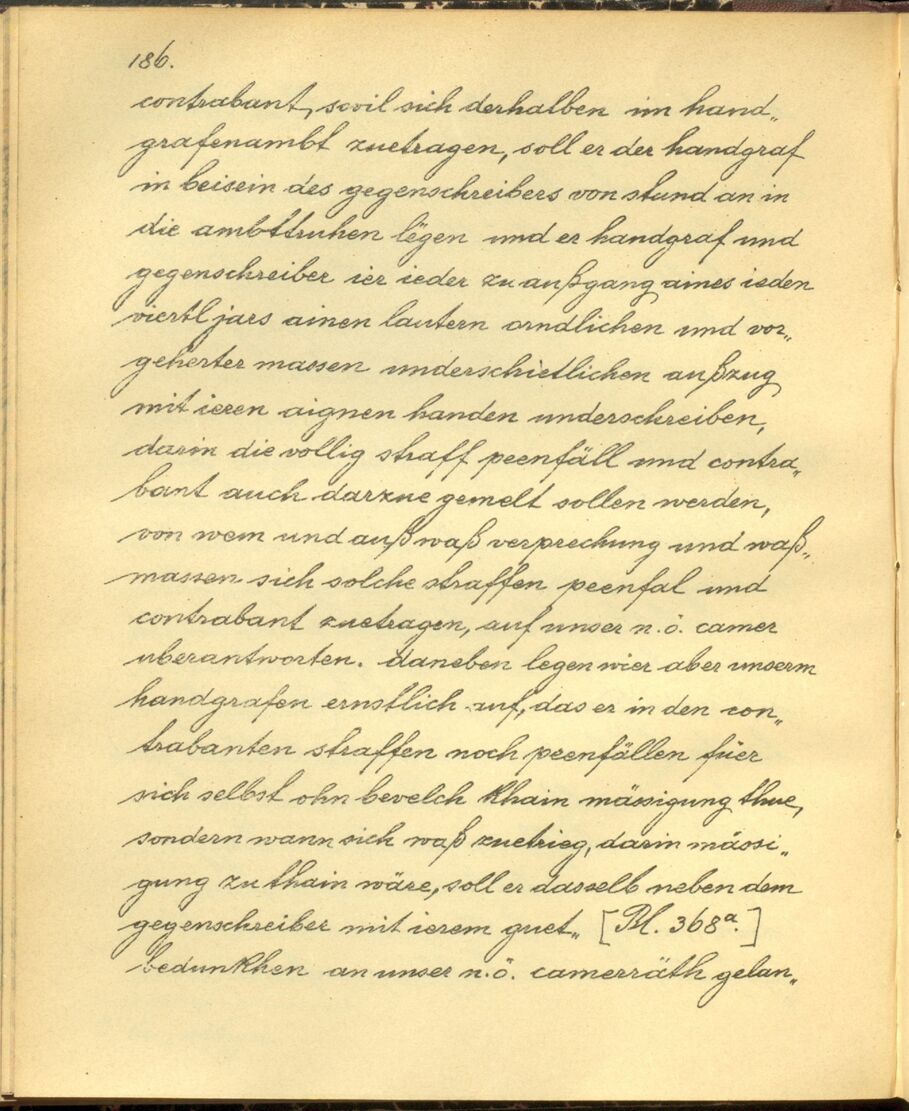 186.
contrabant, sovil sich derhalben im hand„
grafenambt zuetragen, soll er der handgraf
in beisein des gegenschreibers von stund an in
die ambttruhen legen und er handgraf und
gegenschreiber ier ieder zu außgang aines ieden
viertl jars ainen lautern orndlichen und vor„
geherter massen underschietlichen außzug
mit ieren aignen handen underschreiben,
darin die vollig straff peenfäll und contra„
bant auch darzue gemelt sollen werden,
von wem und auß waß verprechung und waß„
massen sich solche straffen peenfal und
contrabant zuetragen, auf unser n.ö. camer
uberantworten. daneben legen wier aber unserm
handgrafen ernstlich auf, das er in den con„
trabanten straffen noch peenfällen füer
sich selbst ohn bevelch khain mässigung thue,
sondern wann sich waß zuetrieg, darin mässi„
gung zu thain wäre, soll er dasselb neben dem
gegenschreiber mit ierem guet„ [Bl. 368a.]
bedunkhen an unser n.ö. camerräth gelan„